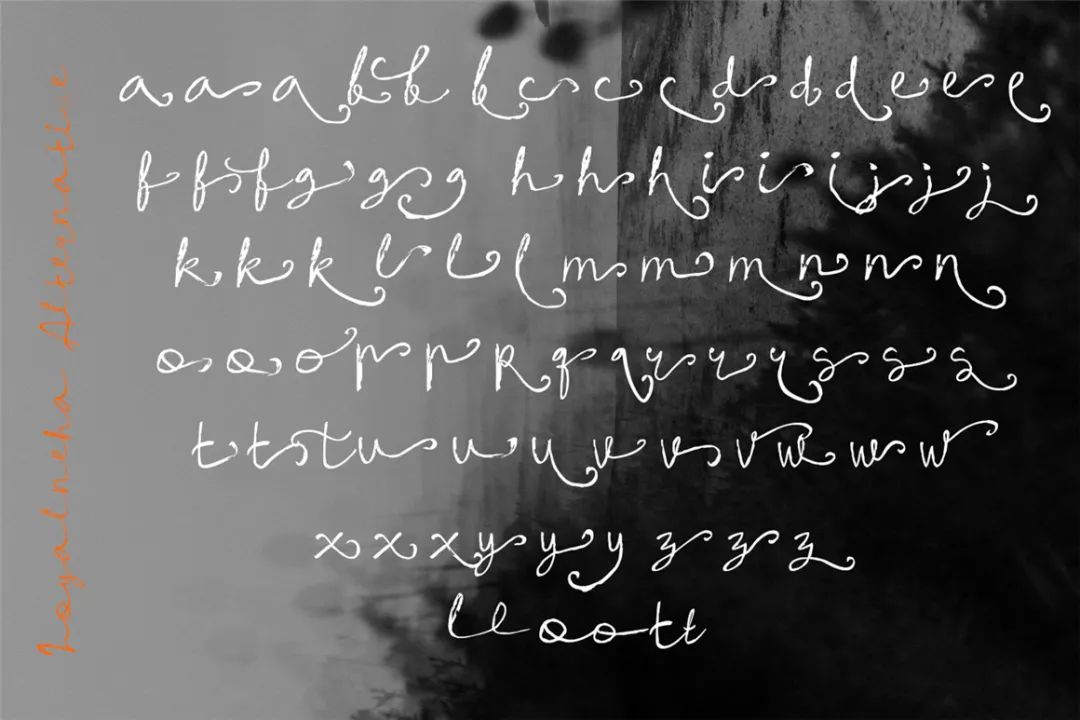 Loyalneha Alternative
a a a b b b c c c d d d e e e
f f f g g g h h h i i i j j j
k k k l l l m m m n n n
o o o p p p q q r r r s s s
t t t u u u v v v w w w
x x x y y y z z z
ll oo tt